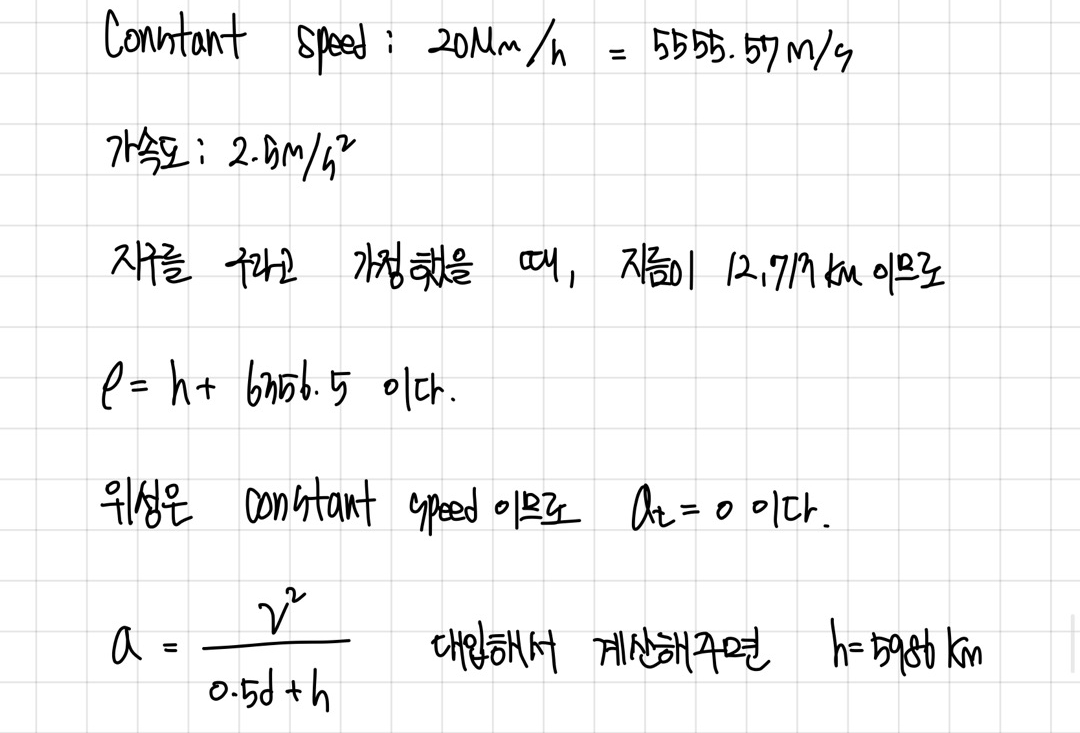 Constant speed : 20Mm/h = 5555.57m/s
가속도 : 2.5m/s²
지구를 구라고 가정했을 때, 지름이 12,713 km 이므로
ρ = h + 6356.5 이다.
위성은 constant speed 이므로 a_t = 0 이다.
a = v² / (0.5d + h) 대입해서 계산해주면 h = 5986 km